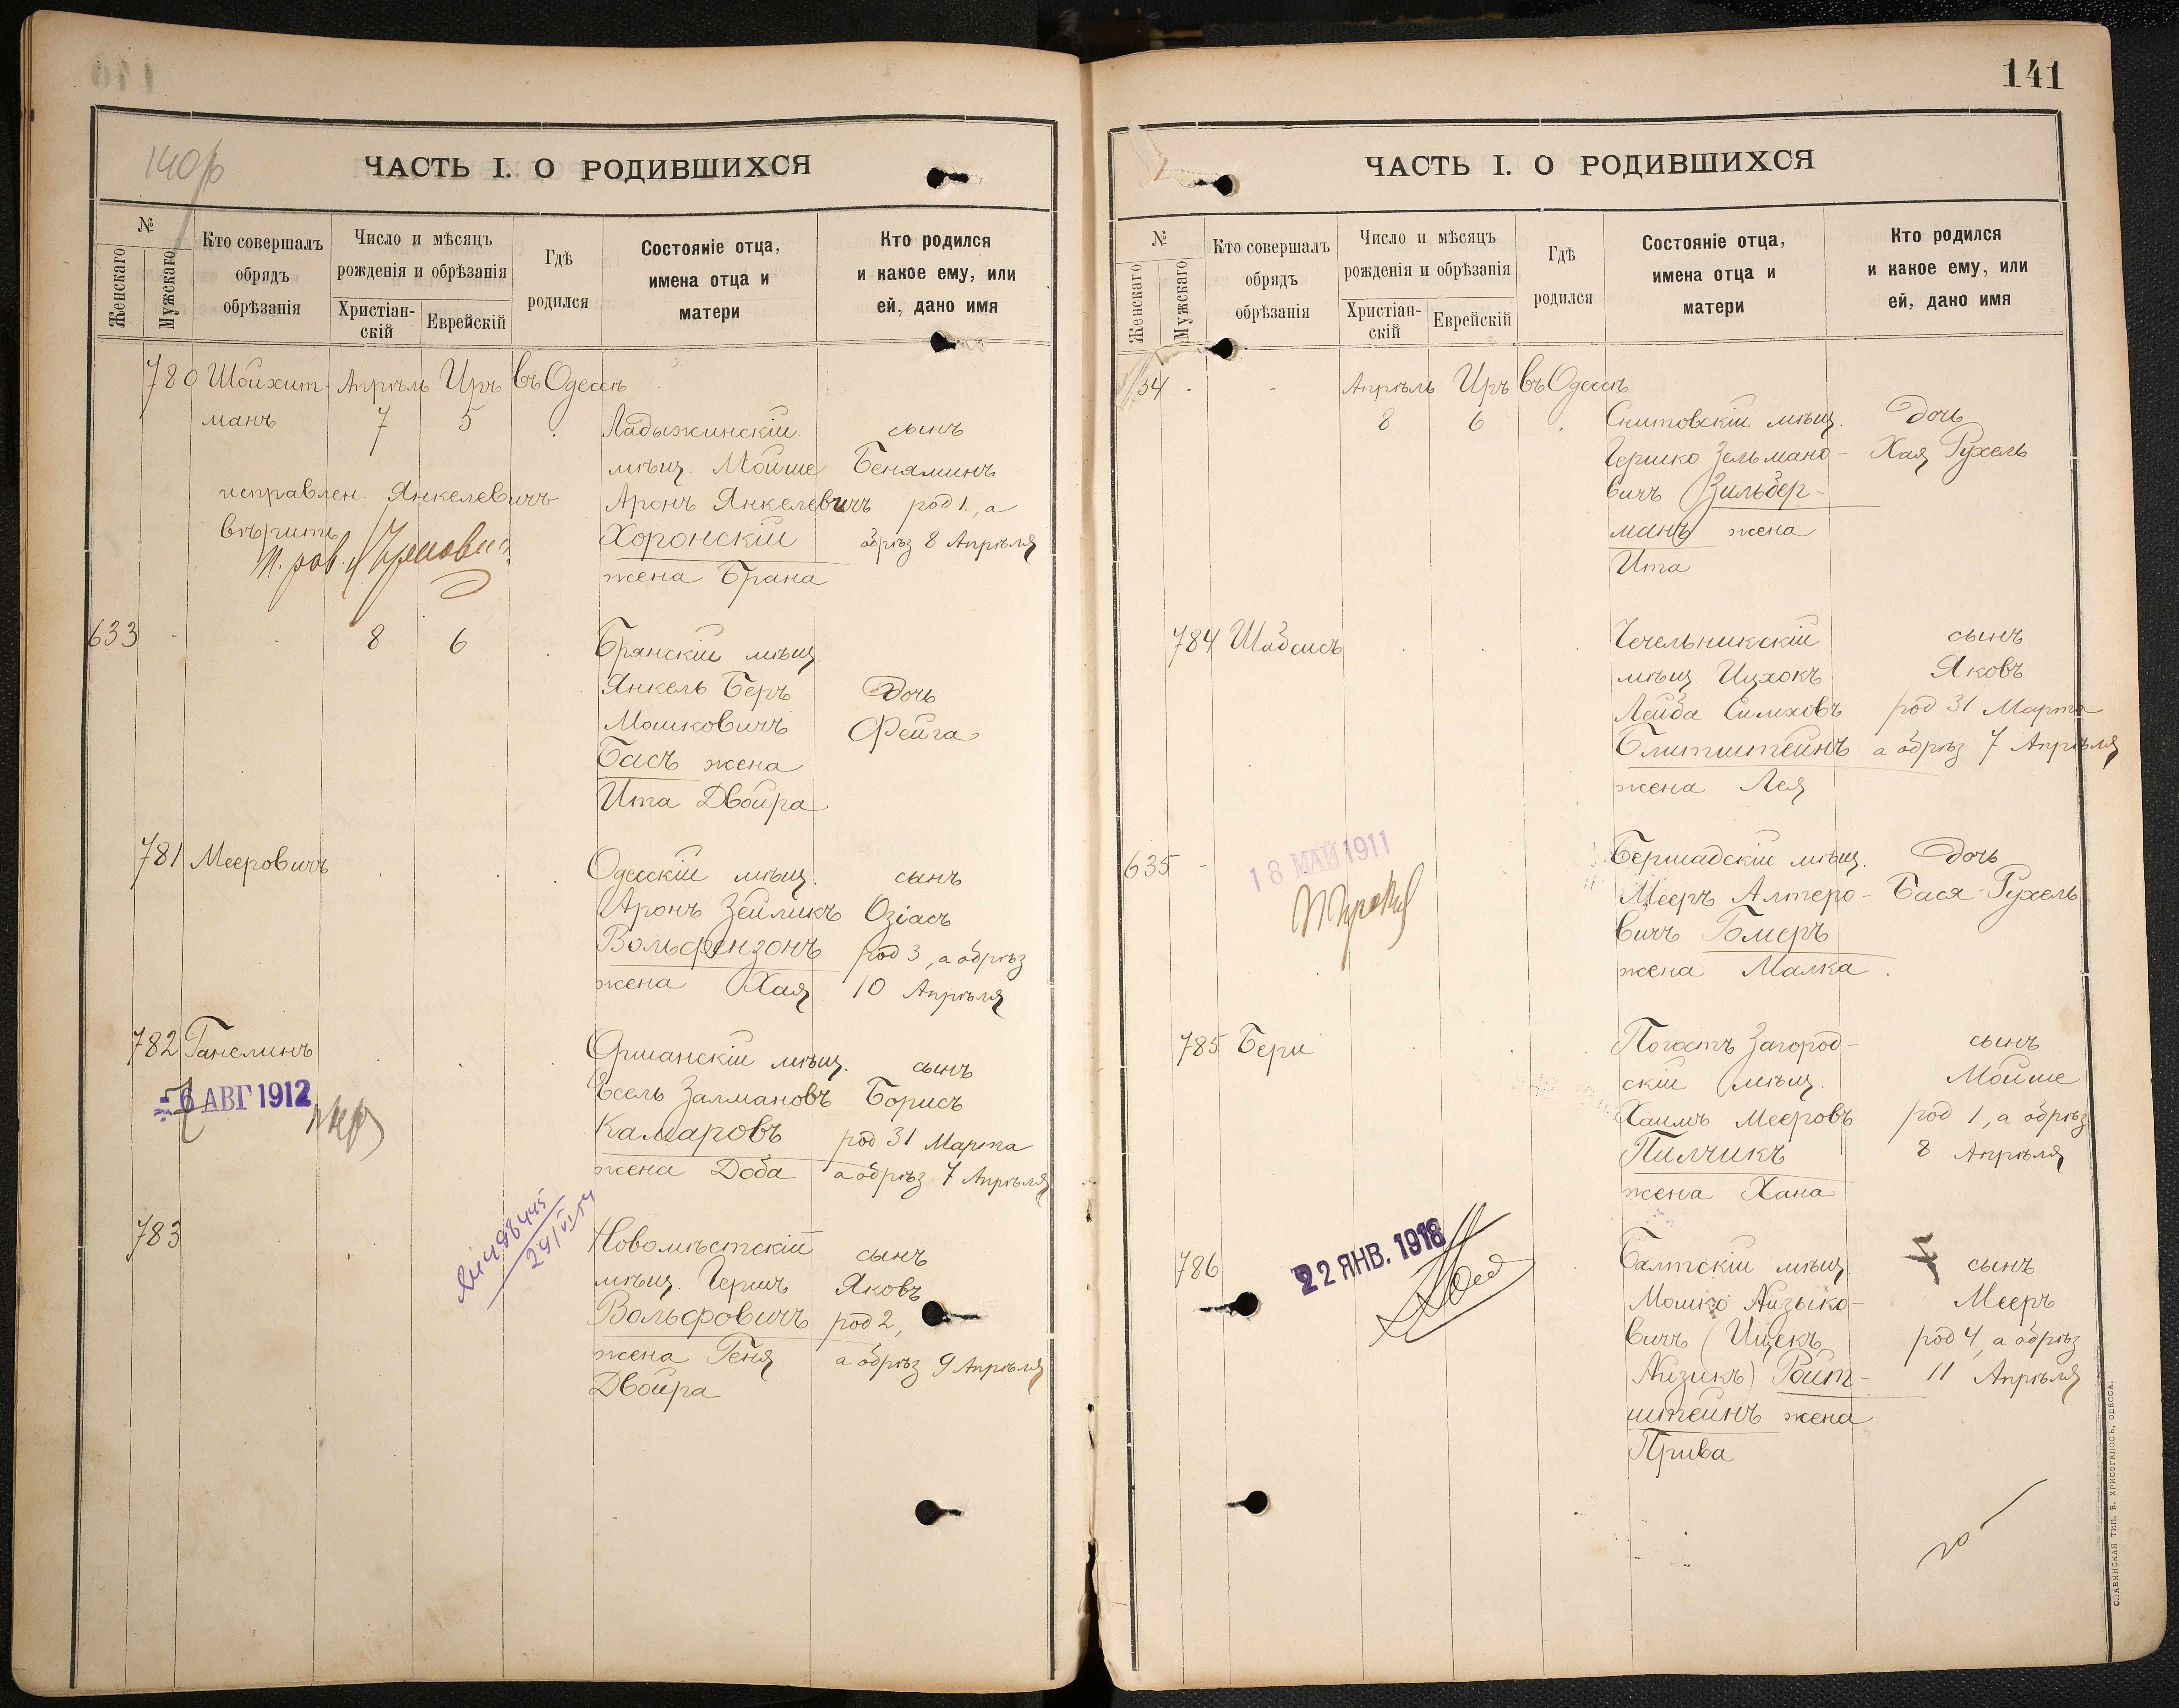 140
ЧАСТЬ I. О РОДИВШИХСЯ
№
Женскаго
Мужскаго
Кто совершалъ
обрядъ
обрѣзанія
Число и мѣсяцъ
рожденія и обрѣзанія
Христіан-
скій
Еврейскій
Гдѣ
родился
Состояніе отца,
имена отца и
матери
Кто родился
и какое ему, или
ей, дано имя
780 Шойхит- Апрѣль Иръ въ Одессѣ
манъ 7 5 Ладыжинскій сынъ
мѣщ. Мойше Беняминъ
исправлен. Янкелевичъ Аронъ Янкелевичъ род 1, а
вѣрить Хоронскій обрѣз 8 Апрѣля
жена Брана
633 - 8 6 Брянскій мѣщ.
Янкель Беръ Дочь
Мошковичъ Фейга
Басъ жена
Ита Двойра
781 Мееровичъ Одесскій мѣщ. сынъ
Аронъ Зейликъ Озіасъ
Вольфензонъ род 3, а обрѣз
жена Хая 10 Апрѣля
782 Ганелинъ Оршанскій мѣщ. сынъ
- 6 АВГ 1912 Есель Залмановъ Борисъ
Камаровъ род 31 Марта
жена Доба а обрѣз 7 Апрѣля
783 Новомѣстскій сынъ
мѣщ. Гершъ Яковъ
Вольфовичъ род 2,
жена Геня а обрѣз 9 Апрѣля
Двойра
141
ЧАСТЬ I. О РОДИВШИХСЯ
№
Женскаго
Мужскаго
Кто совершалъ
обрядъ
обрѣзанія
Число и мѣсяцъ
рожденія и обрѣзанія
Христіан-
скій
Еврейскій
Гдѣ
родился
Состояніе отца,
имена отца и
матери
Кто родился
и какое ему, или
ей, дано имя
34 - - Апрѣль Иръ въ Одессѣ
8 6 Снитовскій мѣщ. Дочь
Гершко Зельмано- Хая Рухель
вичъ Зильбер-
манъ жена
Ита
784 Шабсисъ Чечельникскій сынъ
мѣщ. Ицхокъ Яковъ
Лейба Симховъ род 31 Марта
Блитштейнъ а обрѣз 7 Апрѣля
жена Лея
635 - Бершадскій мѣщ. Дочь
18 МАЙ 1911 Мееръ Алтеро- Бася-Рухель
вичъ Гомеръ
жена Малка
785 Бери Погостъ Загород- сынъ
скій мѣщ. Мойше
Хаимъ Мееровъ род 1, а обрѣз
Пилчикъ 8 Апрѣля
жена Хана
786 22 ЯНВ. 1918 Балтскій мѣщ. сынъ
Мошко Айзыко- Мееръ
вичъ (Ицекъ род 4, а обрѣз
Айзикъ) Ройт- 11 Апрѣля
штейнъ жена
Прива
СЛАВЯНСКАЯ ТИП. Е. ХРИСОГЕЛОСЪ, ОДЕССА.